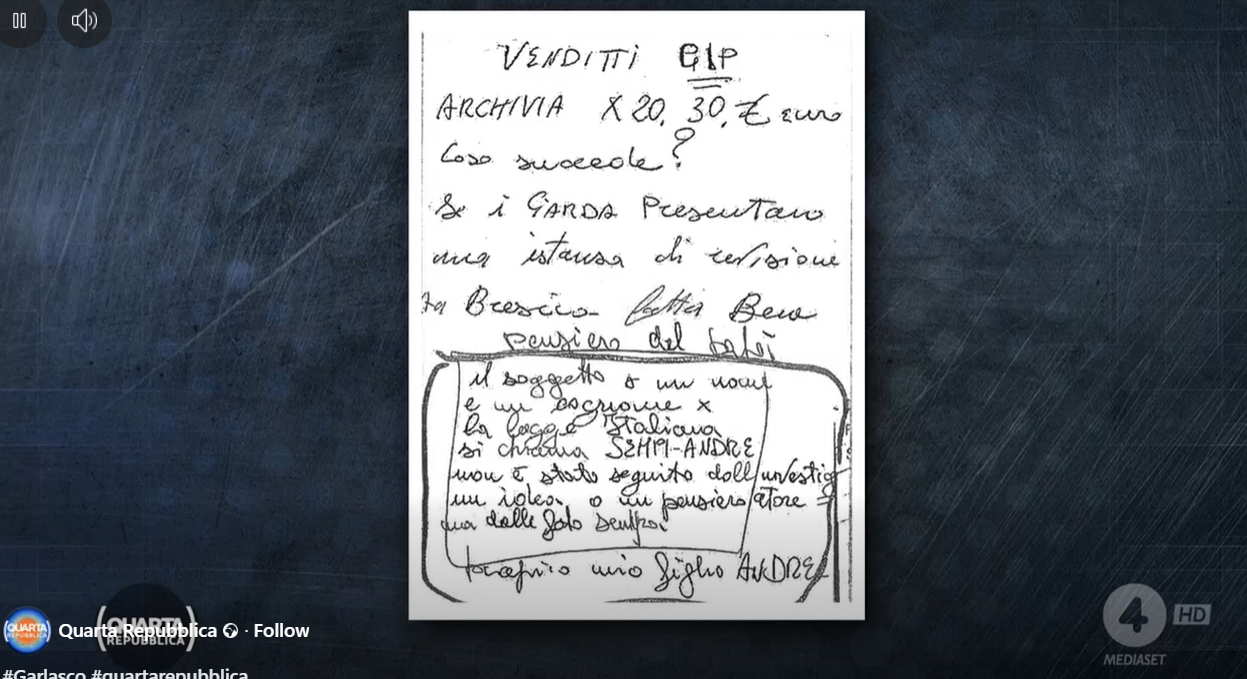 VENDITTI GIP
ARCHIVIA X 20. 30. € euro
Cosa succede?
Se i GARDA Presentano
una istansa di revisione
ta Brescia fatta Bene
pensiero del
il soggetto a un nome
e un cognome x
la legge Italiana
si chiama SEMPI-ANDRE
non è stato seguito dall investig
un idea o un pensiero atore =
ma dalle foto
mio figlio ANDRE
QUARTA REPUBBLICA
QUARTA REPUBBLICA
Quarta Repubblica · Follow
#Garlasco #quartarepubblica
4 HD
MEDIASET